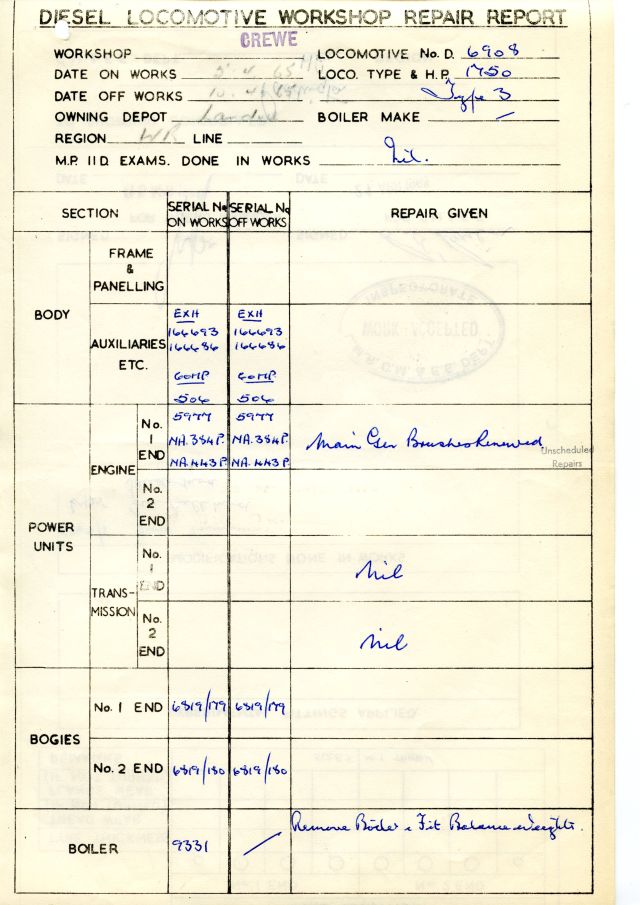 DIESEL LOCOMOTIVE WORKSHOP REPAIR REPORT
CREWE
WORKSHOP
LOCOMOTIVE No. D. 6908
DATE ON WORKS 5 4 65
LOCO. TYPE & H.P. 1750
Type 3
DATE OFF WORKS 10. 4
OWNING DEPOT Landore
BOILER MAKE —
REGION WR LINE
M.P. 11 D. EXAMS. DONE IN WORKS Nil.
SECTION
SERIAL No ON WORKS
SERIAL No OFF WORKS
REPAIR GIVEN
BODY
FRAME & PANELLING
AUXILIARIES ETC.
EXH EXH
166693 166693
166686 166686
COMP COMP
506 506
POWER UNITS
ENGINE
No. 1 END
5977 5977
NA.384P. NA.384P.
NA.443P. NA.443P.
Main Gen Brushes Renewed
Unscheduled
Repairs
No. 2 END
TRANS-
MISSION
No. 1 END
Nil
No. 2 END
Nil
BOGIES
No. 1 END 6819/179 6819/179
No. 2 END 6819/180 6819/180
BOILER
9331 —
Remove Boiler & Fit Balance weights.
INSPECTORATE
WORK ACCEPTED
MODIFICATIONS DONE IN WORKS